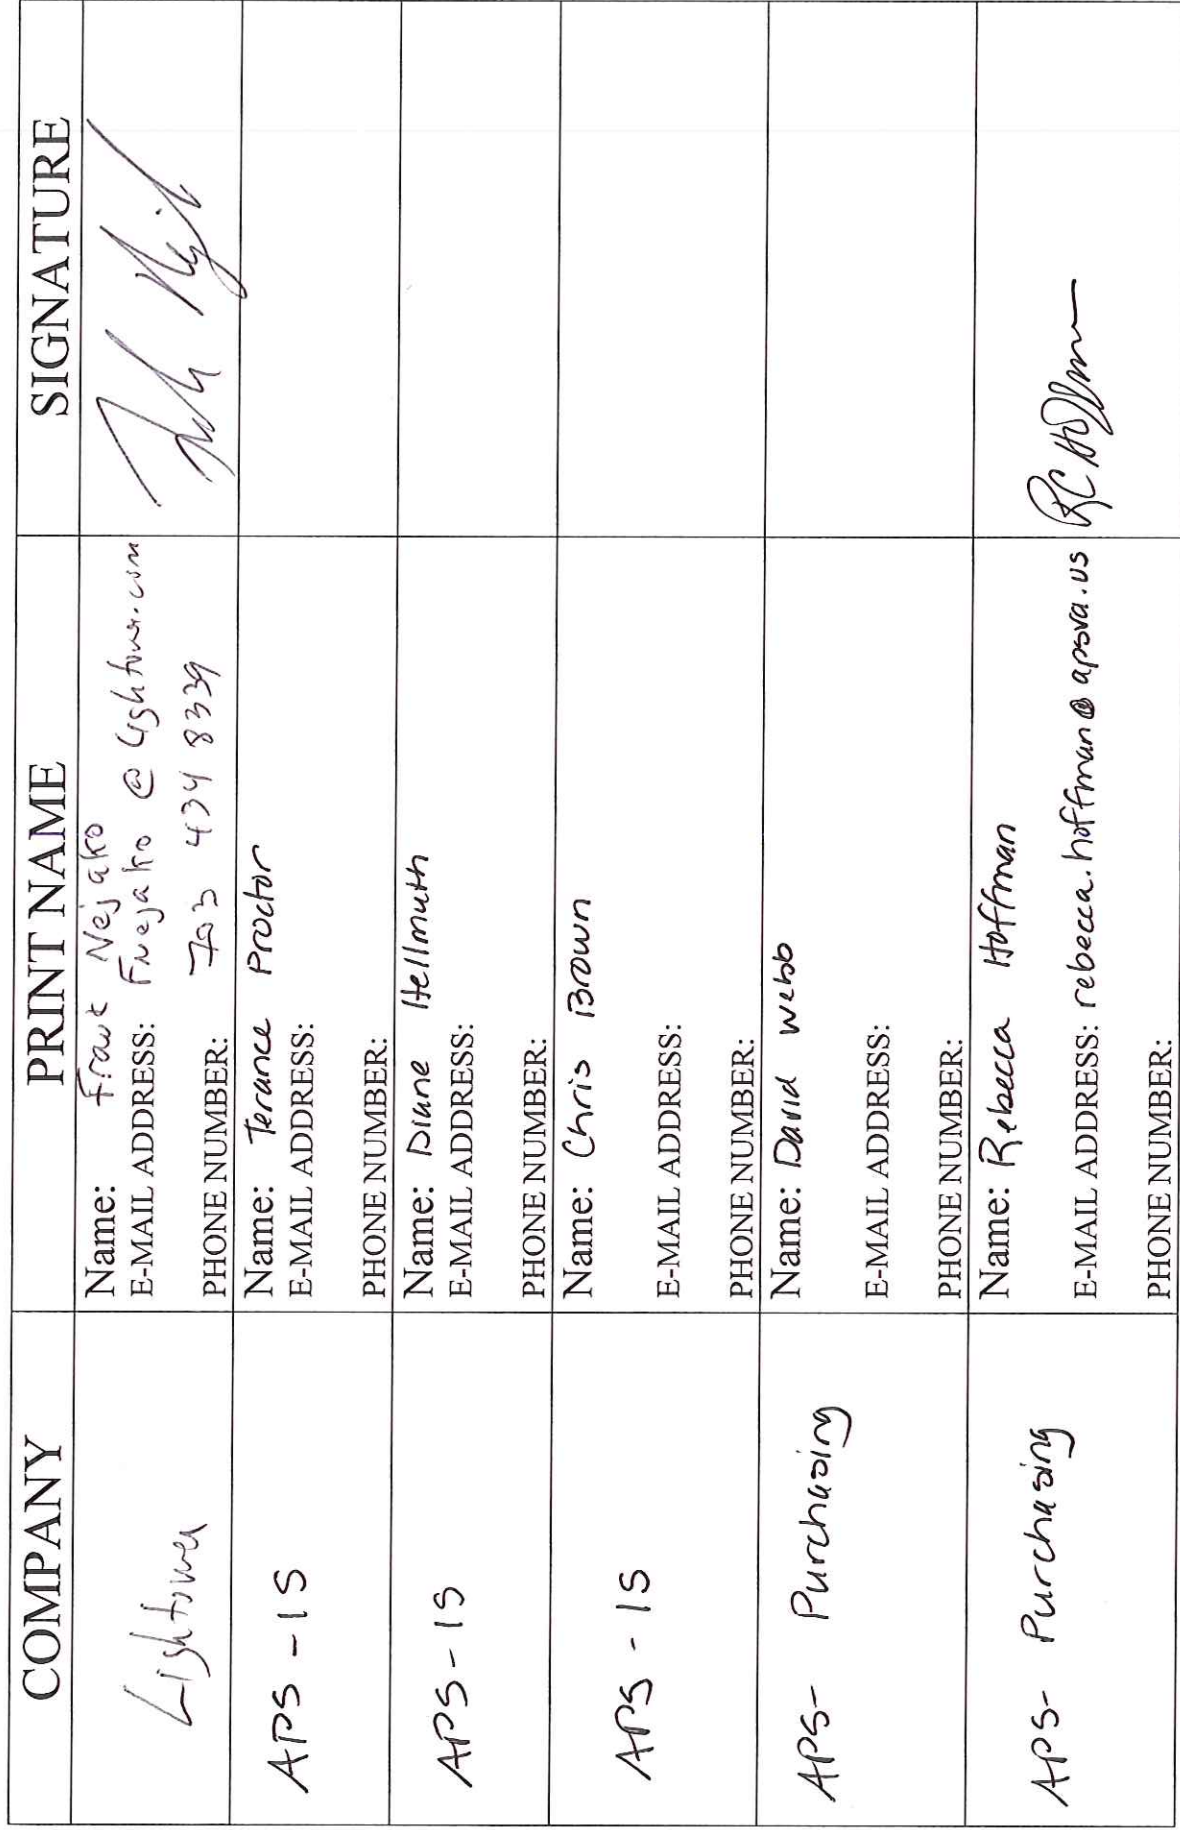 COMPANY PRINT NAME SIGNATURE
Lightower
Name: Frank Nejako
E-MAIL ADDRESS: Fnejako @ Lightower.com
PHONE NUMBER: 703 434 8339
APS - IS
Name: Terance Proctor
E-MAIL ADDRESS:
PHONE NUMBER:
APS - IS
Name: Diane Hellmuth
E-MAIL ADDRESS:
PHONE NUMBER:
APS - IS
Name: Chris Brown
E-MAIL ADDRESS:
PHONE NUMBER:
APS- Purchasing
Name: David Webb
E-MAIL ADDRESS:
PHONE NUMBER:
APS- Purchasing
Name: Rebecca Hoffman
E-MAIL ADDRESS: rebecca.hoffman@apsva.us
PHONE NUMBER:
RC Hoffman